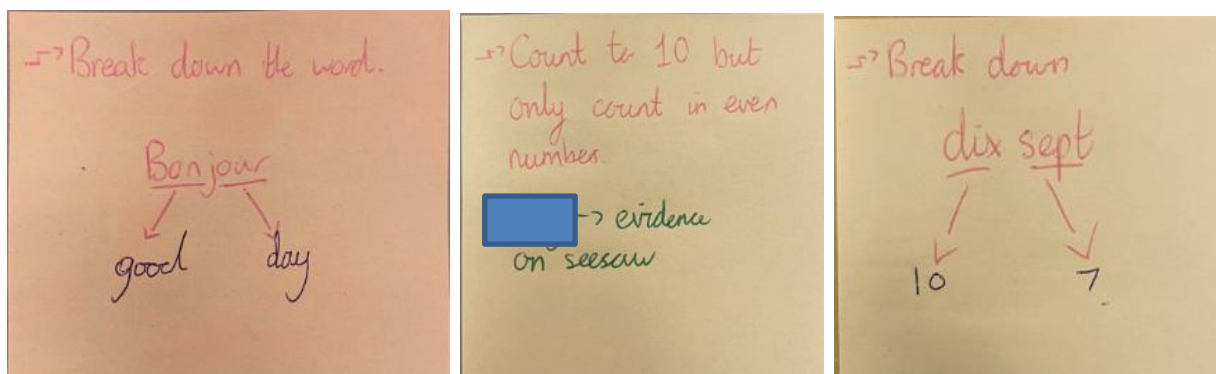 Break down the word.
Bonjour
good day
Count to 10 but
only count in even
number.
-> evidence
on seesaw
Break down
dix sept
10 7